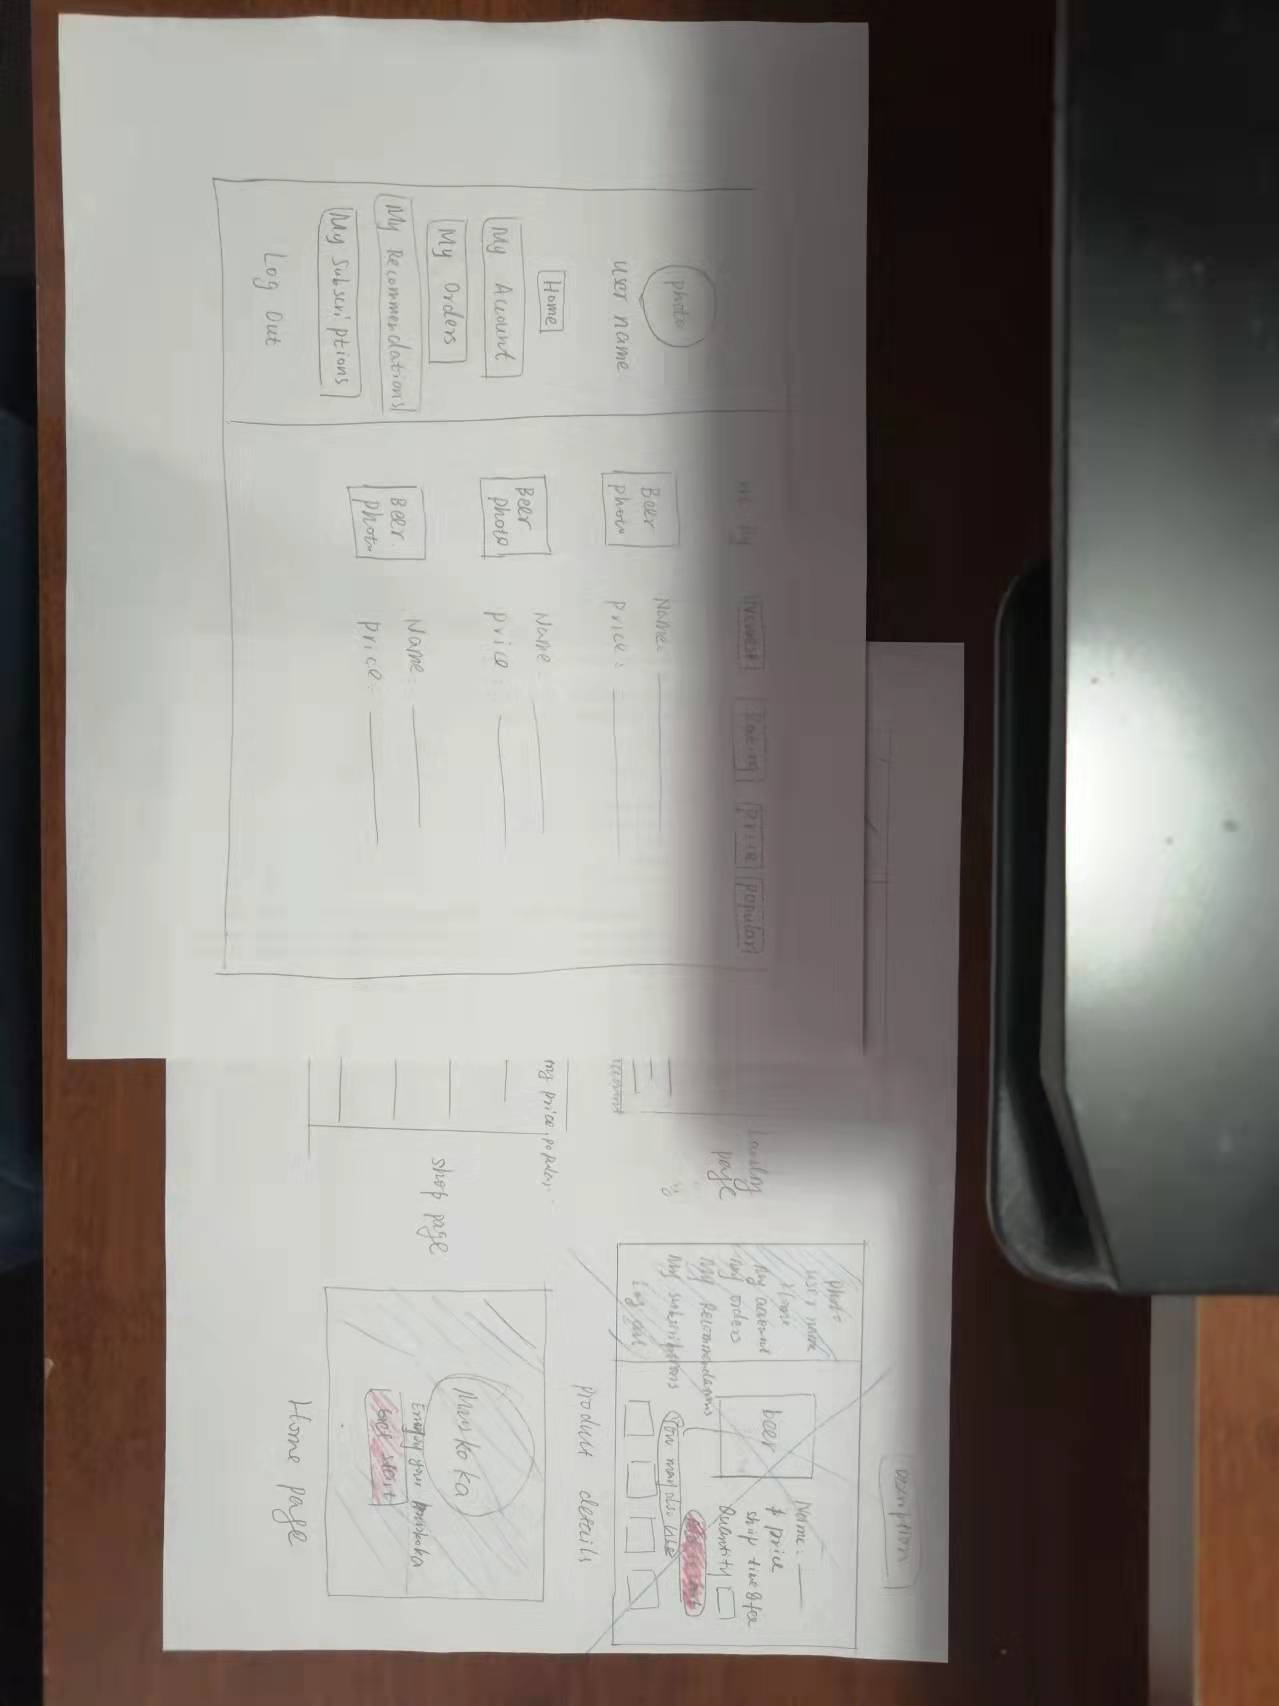 photo
user name
Home
My Account
My Orders
My Recommendations
My Subscriptions
Log Out
By
Newest
Rating
price
popular
Beer
photo
Name:
price:
Beer
photo
Name
price
Beer
photo
Name
price
page
my price, popular
shop page
Description
photo
user name
Home
My account
My orders
My Recommendations
My subscriptions
Log out
beer
Name:
$ price
ship time & fee
Quantity
You may also like
product details
Muskoka
Enjoy your muskoka
Get start
Home page